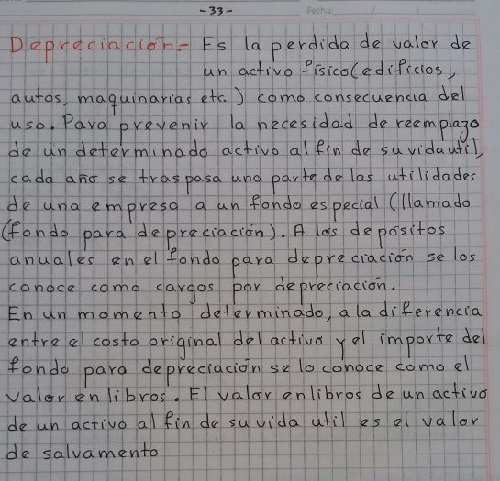 -33-
Fecha:
Depreciación- Es la perdida de valor de
un activo físico (edificios,
autos, maquinarias etc.) como consecuencia del
uso. Para prevenir la necesidad de reemplazo
de un determinado activo al fin de su vida util,
cada año se traspasa una parte de las utilidades
de una empresa a un fondo especial (llamado
(fondo para depreciación). A los depósitos
anuales en el fondo para depreciación se los
conoce como cargos por depreciación.
En un momento determinado, a la diferencia
entre el costo original del activo y el importe del
fondo para depreciación se lo conoce como el
valor en libros. El valor en libros de un activo
de un activo al fin de su vida util es el valor
de salvamento